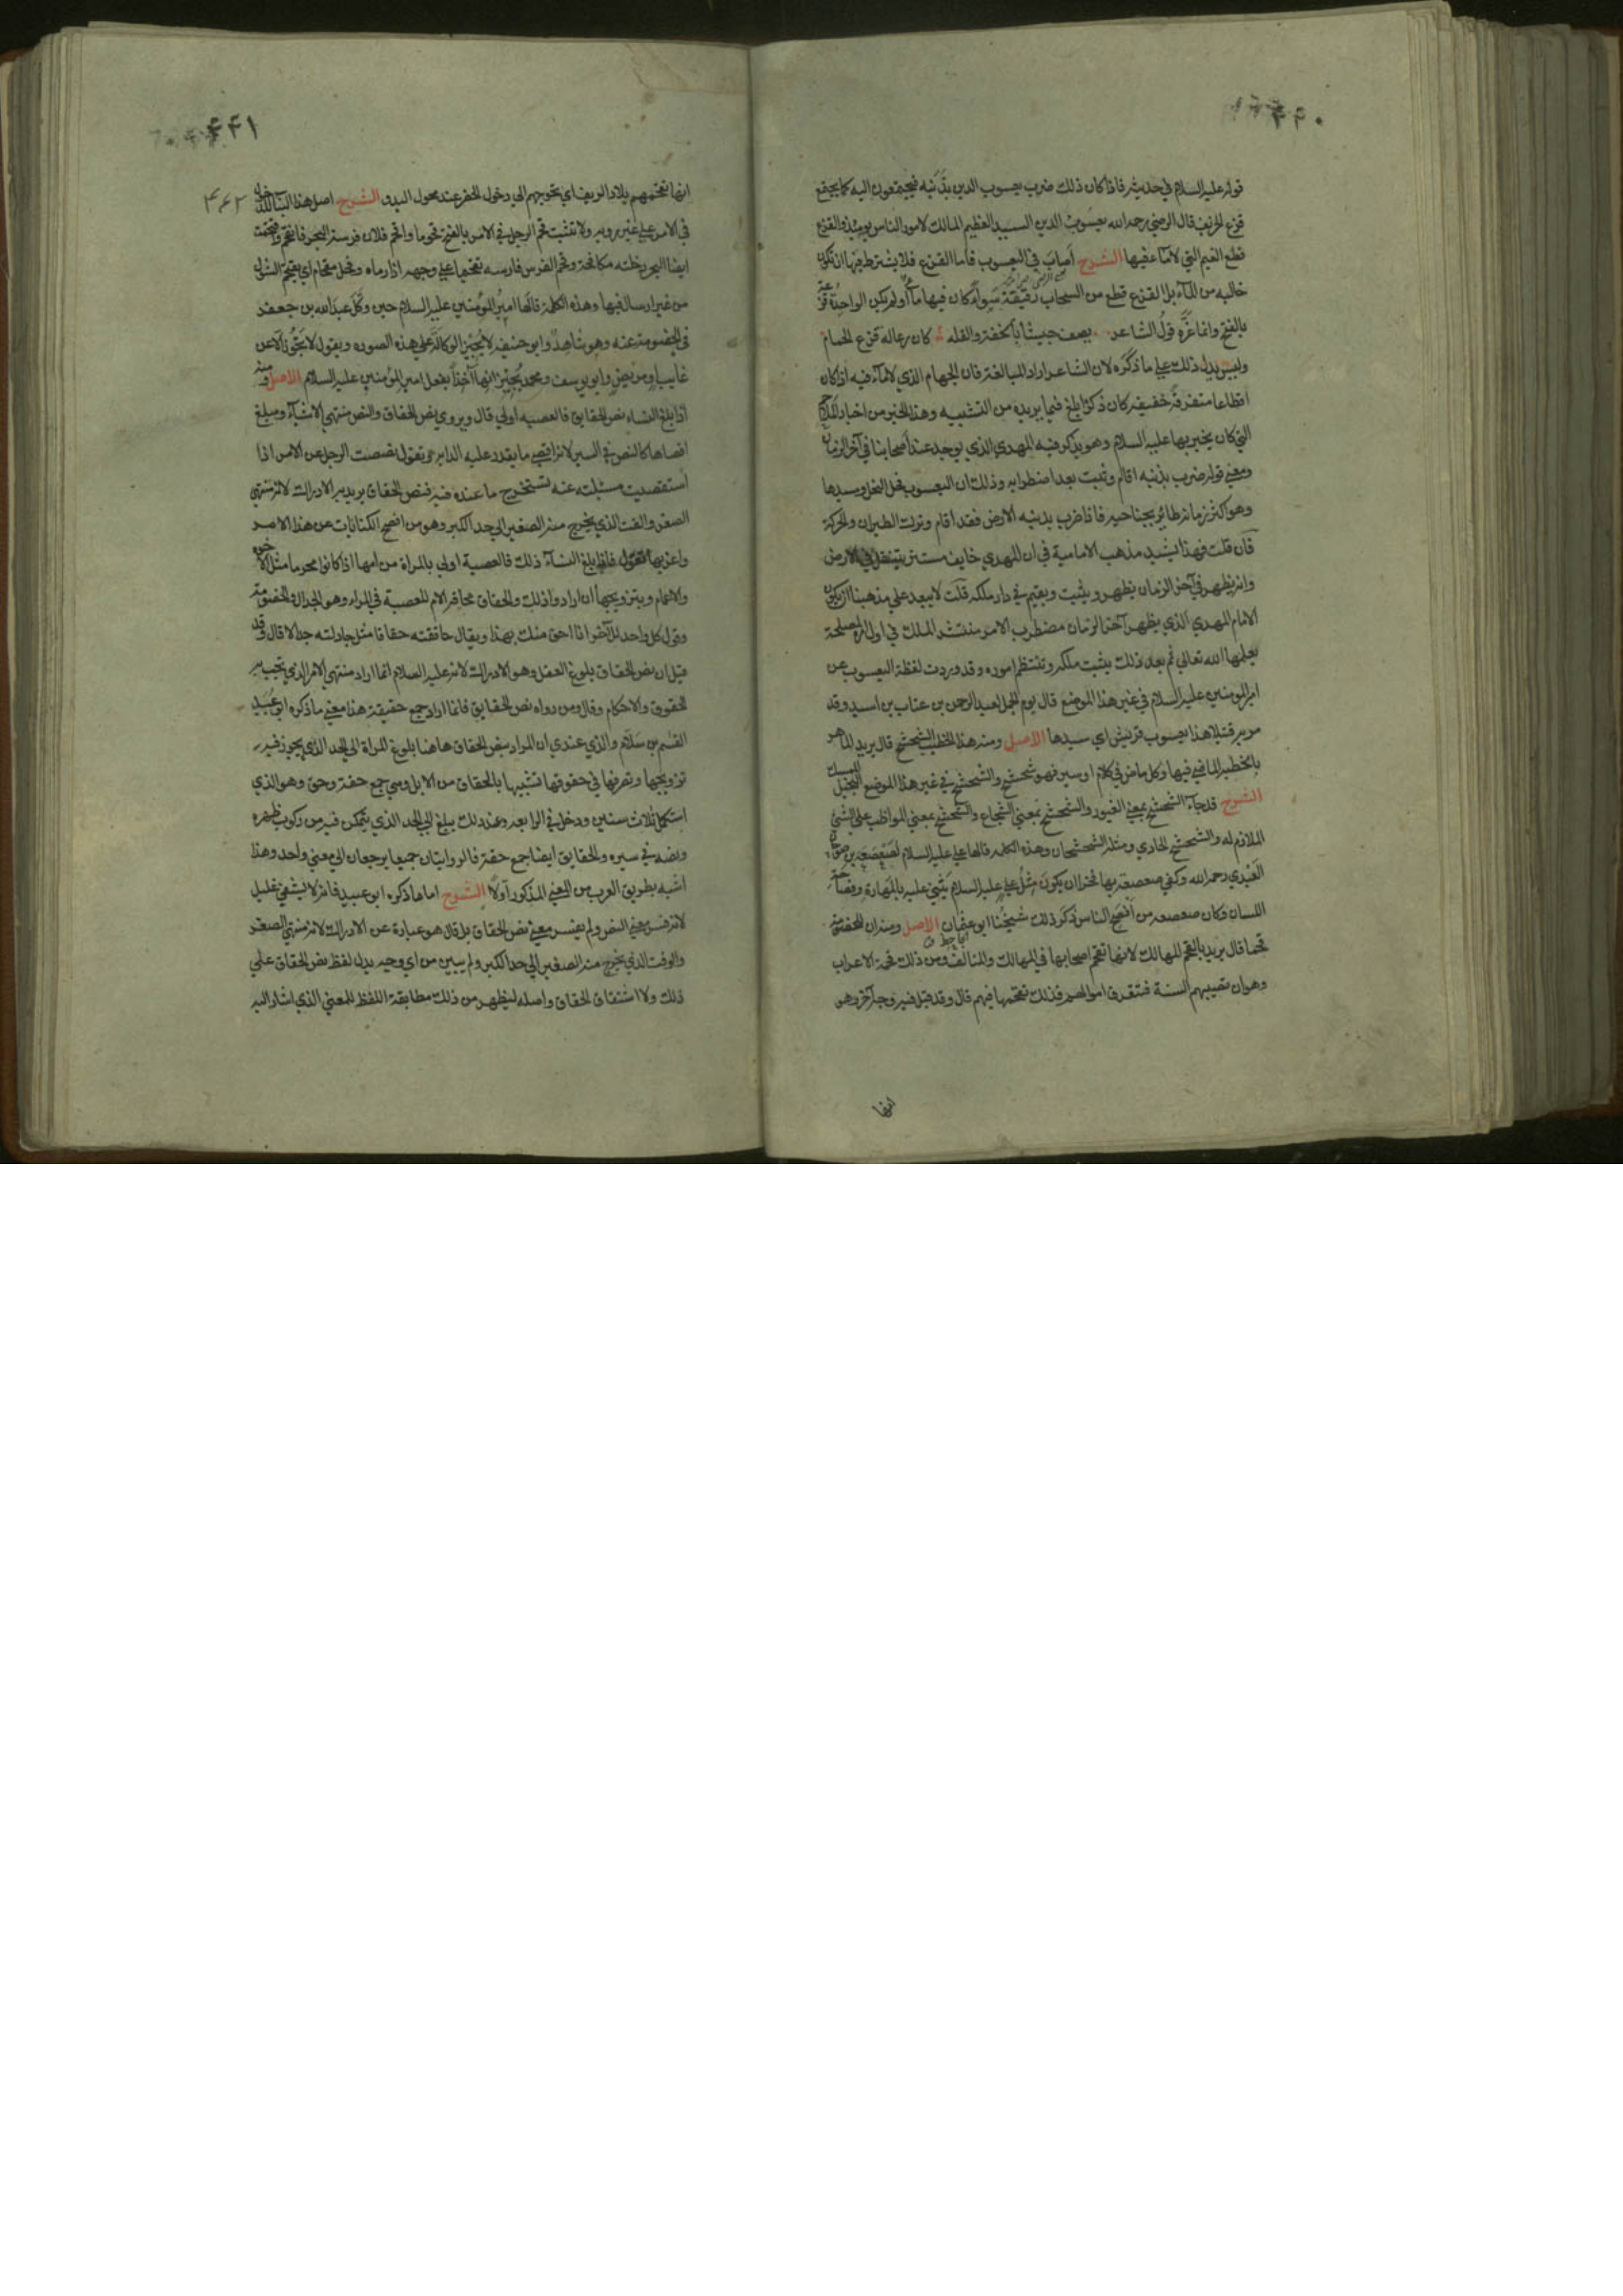 ۴۴۰
قوله عليه السلام في حديثه فاذا كان ذلك ضرب يعسوب الدين بذنبه فيجتمعون اليه كما يجتمع
قزع الخريف قال الرضي رحمه الله يعسوب الدين السيد العظيم المالك لامور الناس يومئذ والقزع
قطع الغيم التي لا ماء فيها الشرح أصاب في اليعسوب فأما القزع فلا يشترط فيها ان تكون
خاليه من الماء بل القزع قطع من السحاب رقيقة سواء كان فيها ماء أو لم يكن الواحدة قزعة
بالفتح وانما غره قول الشاعر يصف جيشا بالخفة والقله كان رعاله قزع الجهام
وليس يدل ذلك على ما ذكره لان الشاعر اراد المبالغة فان الجهام الذي لا ماء فيه اذا كان
اقطاعا متفرقة خفيفه كان ذكره ابلغ فيما يريده من التشبيه وهذا الخبر من اخبار الملاحم
التي كان يخبر بها عليه السلام وهو يذكر فيه المهدي الذي يوجد عند أصحابنا في آخر الزمان
ومعنى قوله ضرب بذنبه اقام وثبت بعد اضطرابه وذلك ان اليعسوب فحل النحل وسيدها
وهو اكثر زمانه طائر بجناحيه فاذا ضرب بذنبه الارض فقد اقام وترك الطيران والحركة
فان قلت فهذا يشيد مذهب الامامية في ان المهدي خايف مستتر يتنقل في الارض
وانه يظهر في آخر الزمان يظهر ويثبت ويقيم في دار ملكه قلت لا يبعد على مذهبنا ان يكون
الامام المهدي الذي يظهر آخر الزمان مضطرب الامر منتشر الملك في اول امره لمصلحة
يعلمها الله تعالى ثم بعد ذلك يثبت ملكه وتنتظم اموره وقد وردت لفظة اليعسوب عن
امير المومنين عليه السلام في غير هذا الموضع قال يوم الجمل لعبد الرحمن بن عتاب بن اسيد وقد
مر به قتيلا هذا يعسوب قريش اي سيدها الاصل ومنه هذا الخطيب الشحشح قال يريد الماهر
بالخطبة الماضي فيها وكل ماض في كلام او سير فهو شحشح والشحشح في غير هذا الموضع البخيل الممسك
الشرح قد جاء الشحشح بمعنى الغيور والشحشح بمعنى الشجاع والشحشح بمعنى المواظب على الشي
الملازم له والشحشح الحادي ومثله الشحشحان وهذه الكلمه قالها علي عليه السلام لصعصعه بن صوحان
العبدي رحمه الله وكفى صعصعة بها فخرا ان يكون مثل علي عليه السلام يثني عليه بالمهارة وفصاحة
اللسان وكان صعصعه من افصح الناس ذكر ذلك شيخنا ابو عثمان الجاحظ الاصل ومنه ان للخصومة
قحما قال يريد بالقحم المهالك لانها تقحم اصحابها في المهالك والمتالف ومن ذلك قحمة الاعراب
وهو ان تصيبهم السنة فتتعرق اموالهم فذلك تقحمها فيهم قال وقد قيل فيه وجه آخر وهو
انها
۴۴۱
۴۴۲
انها تقحمهم بلاد الريف اي تحوجهم الى دخول الحضر عند محول البدو الشرح اصل هذا البناء للدخول
في الامر على غير رويه ولا تثبت قحم الرجل في الامر بالفتح قحوما واقحم فلان فرسه البحر فانقحم واقتحمت
ايضا البحر دخلته مكافحة وقحم الفرس فارسه تقحيما على وجهه اذا رماه وفحل مقحام اي يقتحم الشول
من غير ارسال فيها وهذه الكلمة قالها امير المؤمنين عليه السلام حين وكل عبد الله بن جعفر
في الخصومة عنه وهو شاهد وابو حنيفه لا يجيز الوكالة على هذه الصوره ويقول لا تجوز الا عن
غايب او مريض وابو يوسف ومحمد يجيزانها أخذا بفعل امير المؤمنين عليه السلام الاصل ومنه
اذا بلغ النساء نص الحقايق فالعصبه اولى قال ويروى نص الحقاق والنص منتهى الاشياء ومبلغ
اقصاها كالنص في السير لانه اقصى ما يقدر عليه الدابه وتقول نصصت الرجل عن الامر اذا
استقصيت مسئلته عنه لتستخرج ما عنده فيه فنص الحقاق يريد به الادراك لانه منتهى
الصغر والوقت الذي يخرج منه الصغير الى حد الكبر وهو من افصح الكنايات عن هذا الامر
واغربها يقول فاذا بلغ النساء ذلك فالعصبة اولى بالمراة من امها اذا كانوا محرما مثل الاخوة
والاعمام وبتزويجها ان ارادوا ذلك والحقاق محاقة الام للعصبة في المراه وهو الجدال والخصومة
وقول كل واحد للآخر انا احق منك بهذا ويقال حاققته حقاقا مثل جادلته جدالا قال وقد
قيل ان نص الحقاق بلوغ العقل وهو الادراك لانه عليه السلام انما اراد منتهى الامر الذي تجب به
الحقوق والاحكام وقال ومن رواه نص الحقايق فانما اراد جمع حقيقة هذا معنى ما ذكره ابو عبيد
القسم بن سلام والذي عندي ان المراد بنص الحقاق هاهنا بلوغ المراة الى الحد الذي يجوز فيه
تزويجها وتصرفها في حقوقها تشبيها بالحقاق من الابل وهي جمع حقة وحق وهو الذي
استكمل ثلاث سنين ودخل في الرابعه وعند ذلك يبلغ الى الحد الذي يتمكن فيه من ركوب ظهره
ونصه في سيره والحقايق ايضا جمع حقة فالروايتان جميعا يرجعان الى معنى واحد وهذا
اشبه بطريق العرب من المعنى المذكور أولا الشرح اما ما ذكره ابو عبيد فانه لا يشفي غليل
لانه فسر معنى النص ولم يفسر معنى نص الحقاق بل قال هو عبارة عن الادراك لانه منتهى الصغر
والوقت الذي يخرج منه الصغير الى حد الكبر ولم يبين من اي وجه يدل لفظ نص الحقاق على
ذلك ولا اشتقاق الحقاق واصله ليظهر من ذلك مطابقة اللفظ للمعنى الذي اشار اليه